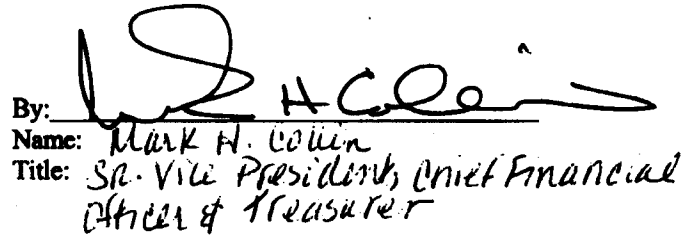 By: Mark H Collin
Name: Mark H. Collin
Title: Sr. Vice President, Chief Financial
Officer & Treasurer